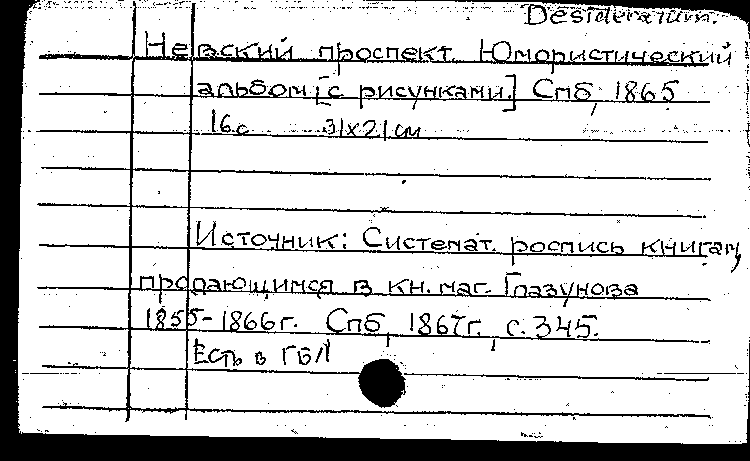 Desideratum.
Невский проспект. Юмористический
альбом [с рисунками] Спб, 1865
16с 31х21 см
Источник: Системат. роспись книгам,
продающимся в кн. маг. Глазунова
1855-1866г. Спб, 1867г., с. 345.
Есть в ГБЛ